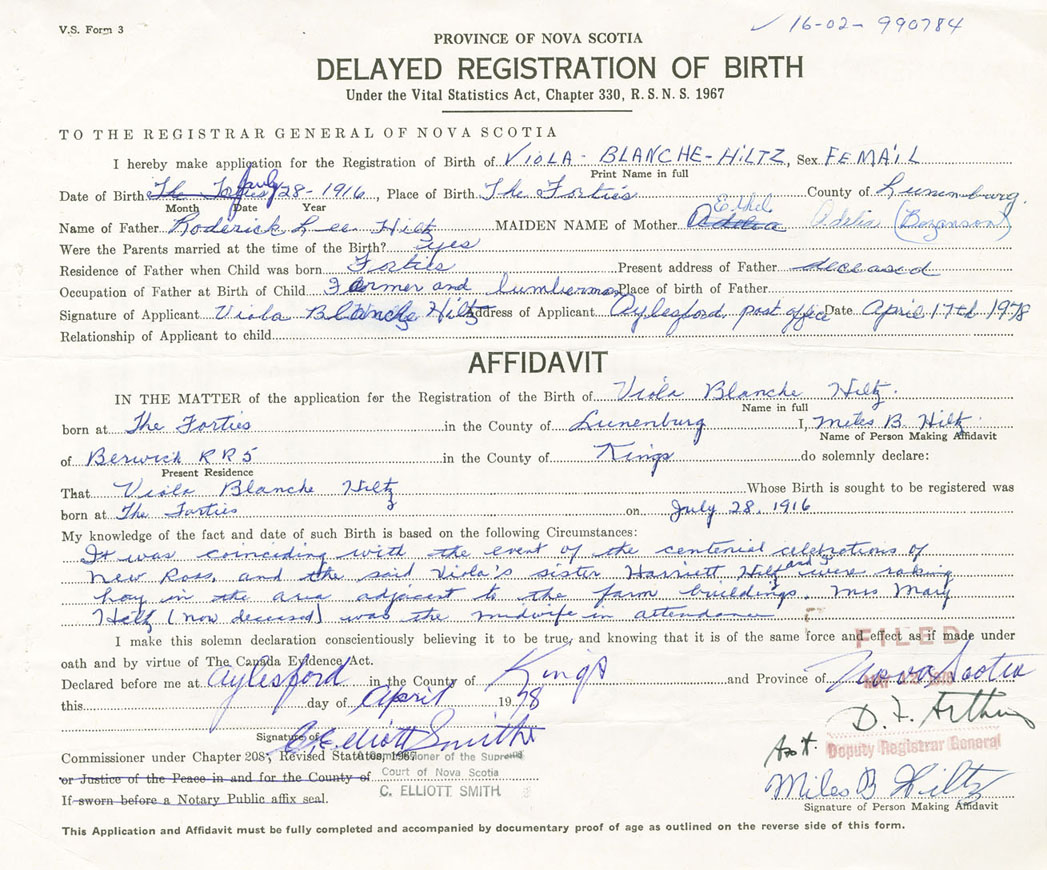 V.S. Form 3
✓ 16-02-990784
PROVINCE OF NOVA SCOTIA
DELAYED REGISTRATION OF BIRTH
Under the Vital Statistics Act, Chapter 330, R. S. N. S. 1967
TO THE REGISTRAR GENERAL OF NOVA SCOTIA
I hereby make application for the Registration of Birth of VIOLA - BLANCHE - HILTZ, Sex FEMAIL
Print Name in full
Date of Birth The Forties July 28-1916, Place of Birth The Forties County of Lunenburg.
Month Date Year
Name of Father Roderick Lee Hiltz MAIDEN NAME of Mother Ethel Adelia (Boganson)
Were the Parents married at the time of the Birth? yes
Residence of Father when Child was born Forties Present address of Father deceased
Occupation of Father at Birth of Child Farmer and lumberman Place of birth of Father
Signature of Applicant Viola Blanche Hiltz Address of Applicant Aylesford post office Date April 17th 1978
Relationship of Applicant to child
AFFIDAVIT
IN THE MATTER of the application for the Registration of the Birth of Viola Blanche Hiltz.
Name in full
born at The Forties in the County of Lunenburg I, Miles B. Hiltz
Name of Person Making Affidavit
of Berwick RR5 in the County of Kings do solemnly declare:
Present Residence
That Viola Blanche Hiltz Whose Birth is sought to be registered was
born at The Forties on July 28, 1916
My knowledge of the fact and date of such Birth is based on the following Circumstances:
It was coinciding with the event of the centenial celebrations of
New Ross, and the said Viola's sister Harriett Hiltz and I were raking
hay in the area adjacent to the farm buildings. Mrs Mary
Hiltz (now deceased) was the midwife in attendance
I make this solemn declaration conscientiously believing it to be true, and knowing that it is of the same force and effect as if made under
oath and by virtue of The Canada Evidence Act.
FILED
Declared before me at Aylesford in the County of Kings and Province of Nova Scotia
this day of April 1978
D. F. Arthur
Signature of C. Elliott Smith
Asst. Deputy Registrar General
Commissioner under Chapter 208, Revised Statutes, 1967
A Commissioner of the Supreme
or Justice of the Peace in and for the County of
Court of Nova Scotia
C. ELLIOTT SMITH
Miles B Hiltz
If sworn before a Notary Public affix seal.
Signature of Person Making Affidavit
This Application and Affidavit must be fully completed and accompanied by documentary proof of age as outlined on the reverse side of this form.